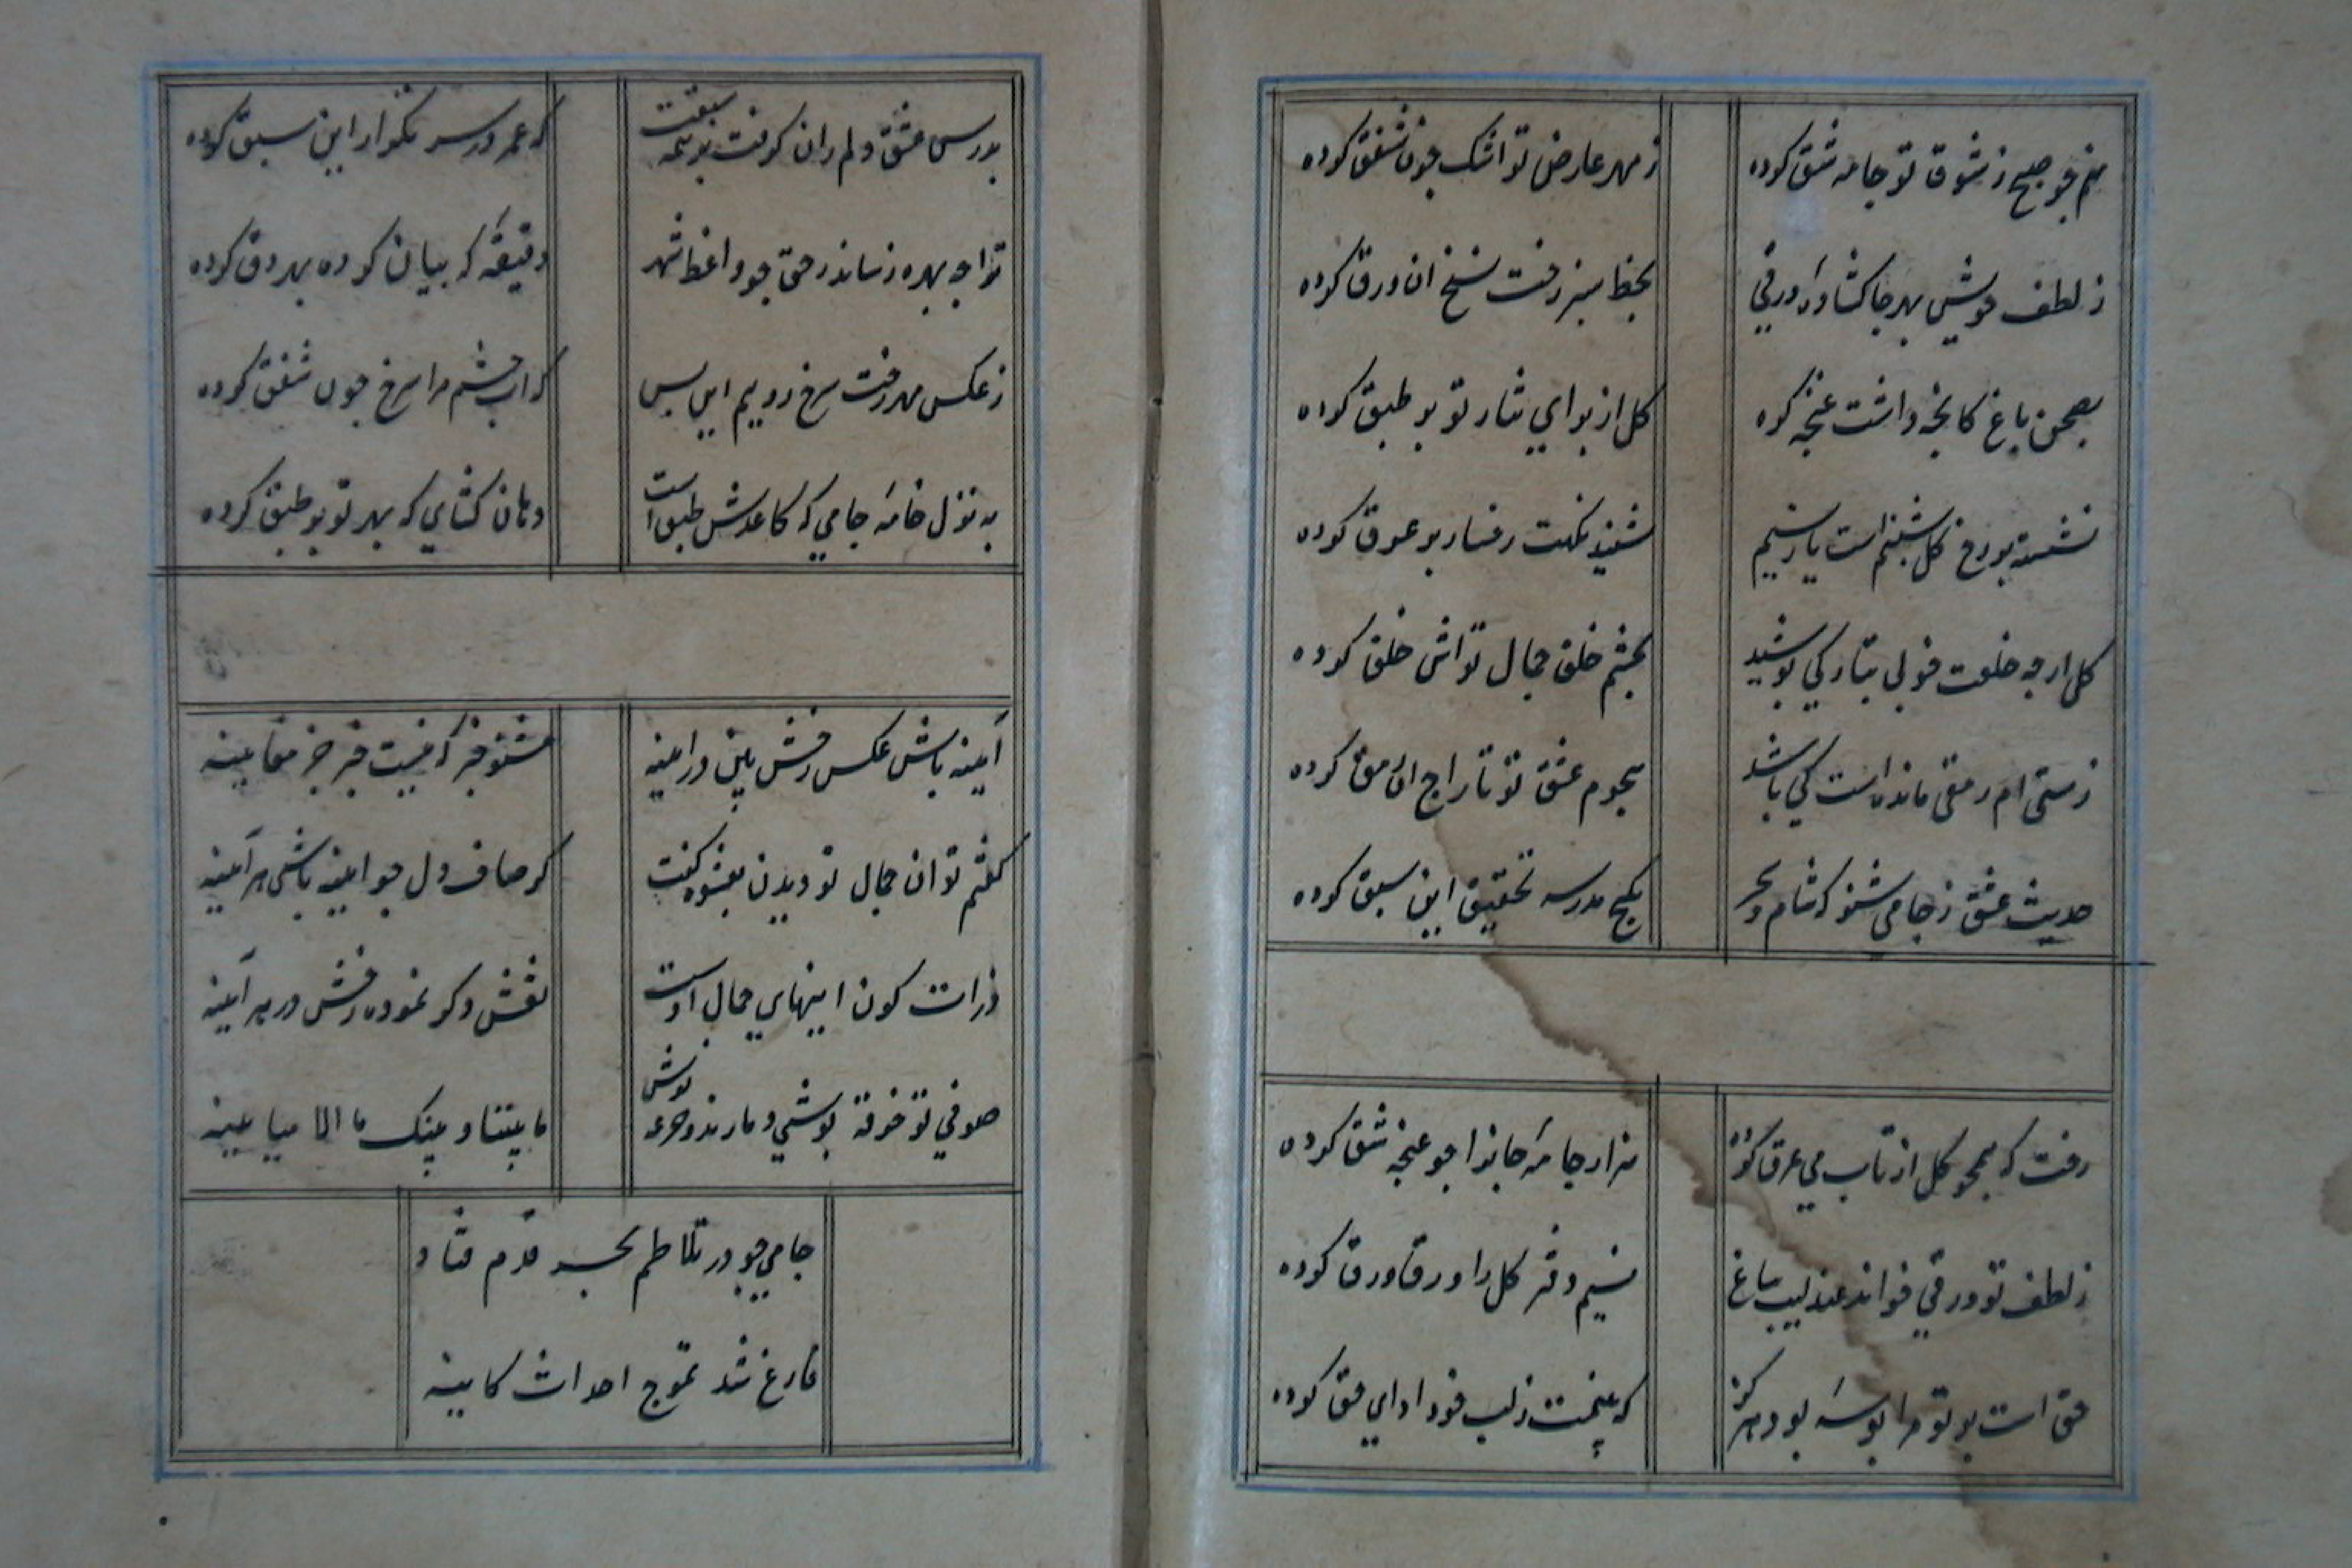 منم چو صبح ز شوق تو جامه شق کرده
ز مهر عارض تو اشک چون شفق کرده
ز لطف خویش بهر جا کشاده ورقی
بخط سبز رخت نسخ ان ورق کرده
بصحن باغ کل از برای نثار تو بر طبق کرده
نشسته بر رخ کل شبنم است یا ز نسیم
شنید نکهت رخسار بر عرق کرده
کل ار چه خلعت خوبی پوشید
بچشم خلق جمال تواش خلق کرده
ز هستی ام رمقی مانده است کی باشد
هجوم عشق تو تاراج ان رمق کرده
حدیث عشق ز جامی شنو که شام و سحر
بکنج مدرسه تحقیق این سبق کرده
رخت که همچو کل از تاب می عرق کرده
هزار جامه جانرا چو غنچه شق کرده
ز لطف تو ورقی خوانده عندلیب بباغ
نسیم دفتر کل را ورق ورق کرده
حق است بر تو مرا بوسه
که نیست ز لب خود ادای حق کرده
بدرس عشق دلم زان کرفت بر همه سبقت
که عمر در سر تکرار این سبق کرده
ترا چه بهره رساند ز حق چو واعظ شهر
دقیقه که بیان کرده بهر دق کرده
ز عکس مهر رخت سرخ رویم این بس
که اب چشم مرا سرخ چون شفق کرده
به نزل خامه جامی که کاغذش طبق است
دهان کشای که بهر تو بر طبق کرده
آیینه باش عکس رخش بین در اینه
بشنو خبر که نیست خبر جز معاینه
کفتم توان جمال تو دیدن بعشوه کفت
کر صاف دل چو اینه باشی هر آینه
ذرات کون اینهای جمال اوست
نقش دکر نموده رخش در هر آینه
صوفی تو خرقه پوشی و ما رند جرعه نوش
ما بیننا و بینک ما الا مباینه
جامی چو در تلاطم بحر قدم فتاد
فارغ شد تموج احداث کاینه